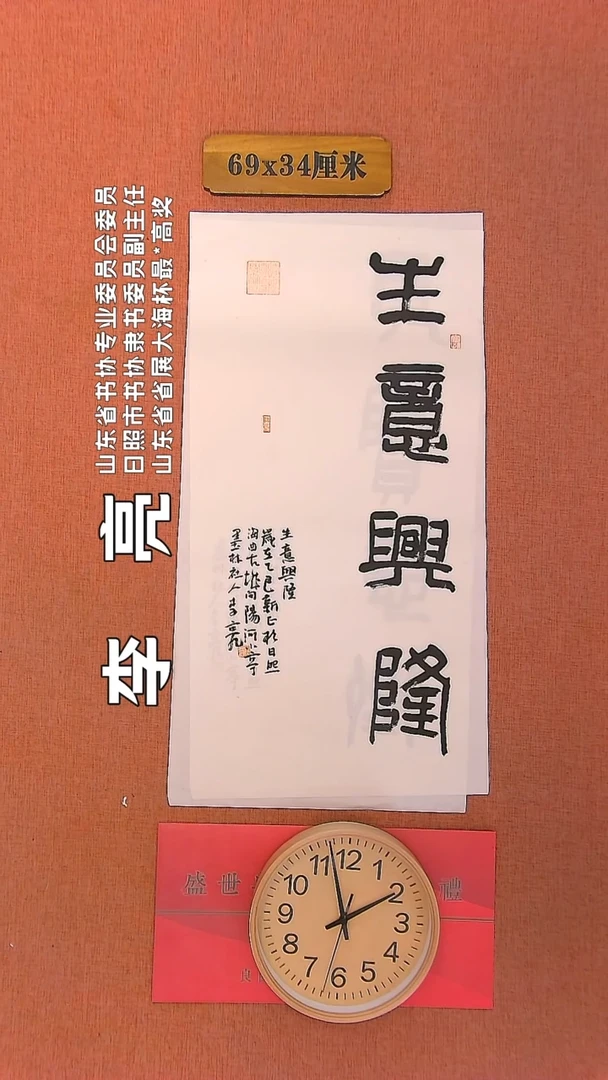 69x34厘米
生意興隆
生意興隆
歲在乙巳新正於日照
海曲古城向陽河小亭
墨林社人李亮
山东省书协专业委员会委员
日照市书协隶书委员副主任
山东省省展大海杯最*高奖
李亮
盛世
禮
良
12
1
2
3
4
5
6
7
8
9
10
11